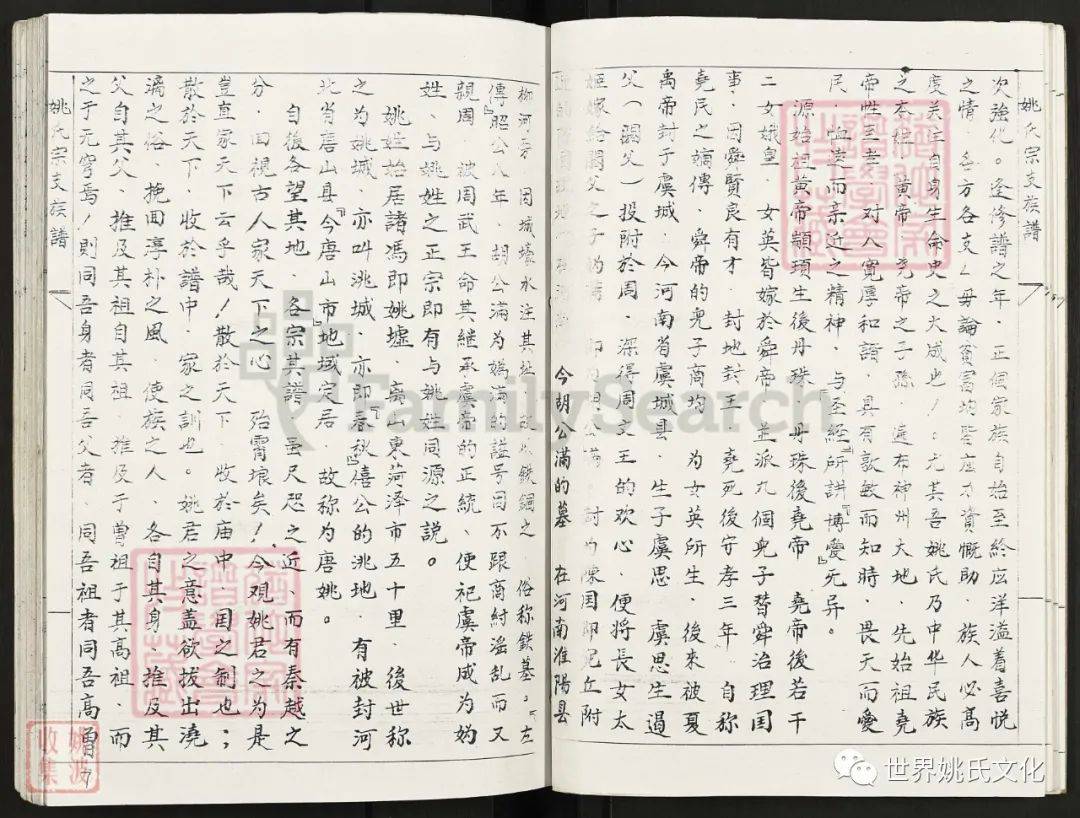 姚氏宗支族譜
次強化。逢修譜之年，正個家族自始至終应洋溢着喜悦
之情，各方各支人毋論貧富均
資慨助，族人必高
度关注自身生命史之大成也！尤其吾姚氏乃中华民族
之本
，黄帝、尧帝之子孫，遍布神州大地，先始祖堯
帝性至孝，对人寬厚和諧，具有敦敏而知時，畏天而愛
民，
而亲近之精神，与『圣经』所讲『博愛』无异。
源始祖黄帝顓頊生後丹珠，丹珠後堯帝，堯帝後若干
二女娥皇、女英皆嫁於舜帝，並派九個兒子替舜治理国
事，因舜賢良有才，封地封王，堯死後守孝三年，自称
堯民之嫡傳，舜帝的兒子商均，为女英所生，後來被夏
禹帝封于虞城，今河南省虞城县，生子虞思，虞思生遏
父（阏父）投附於周，深得周文王的欢心，便将長女太
姬嫁给阏父之子
封为陳国即宛丘附
今胡公滿的墓，在河南淮陽县
柳河旁，因城壕水注其址，故以鉄錮之，俗称鉄墓。『左
傳』昭公八年，胡公滿为媯滿的謚号因不跟商紂滛乱而又
親周，被周武王命其继承虞帝的正統，便祀虞帝成为妫
姓，与姚姓之正宗即有与姚姓同源之説。
姚姓始居諸馮即姚墟，离山東菏泽市五十里，後世称
之为姚城，亦叫洮城，亦即『春秋』僖公的洮地，有被封河
北省唐山县『今唐山市』地域定居，故称为唐姚。
自後各望其地，各宗其譜，虽尺咫之近，而有秦越之
分，回視古人家天下之心，殆霄埌矣！今观姚君之为是
豈直家天下云乎哉！散於天下，收於庙中，国之制也；
散於天下，收於譜中，家之訓也。姚君之意盖欲拔出澆
漓之俗，挽囬淳朴之風，使族之人，各自其身，推及其
父自其父，推及其祖自其祖，推及于曾祖于其高祖，而
之于无穹焉！則同吾身者同吾父者，同吾祖者同吾高曾
姚氏宗支族譜
7
姚波
收集
FamilySearch
世界姚氏文化